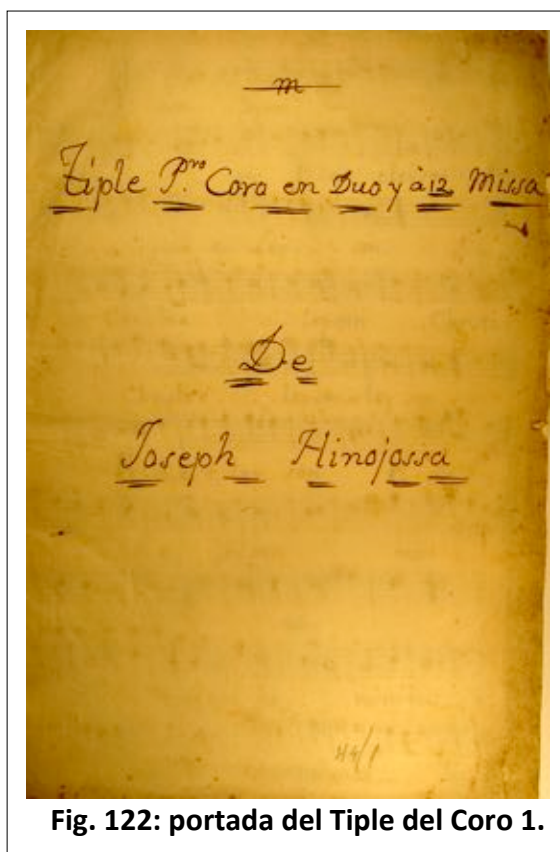 m
Tiple P.ro Coro en Duo y à 12 Missa
De
Joseph Hinojossa
44/1
Fig. 122: portada del Tiple del Coro 1.